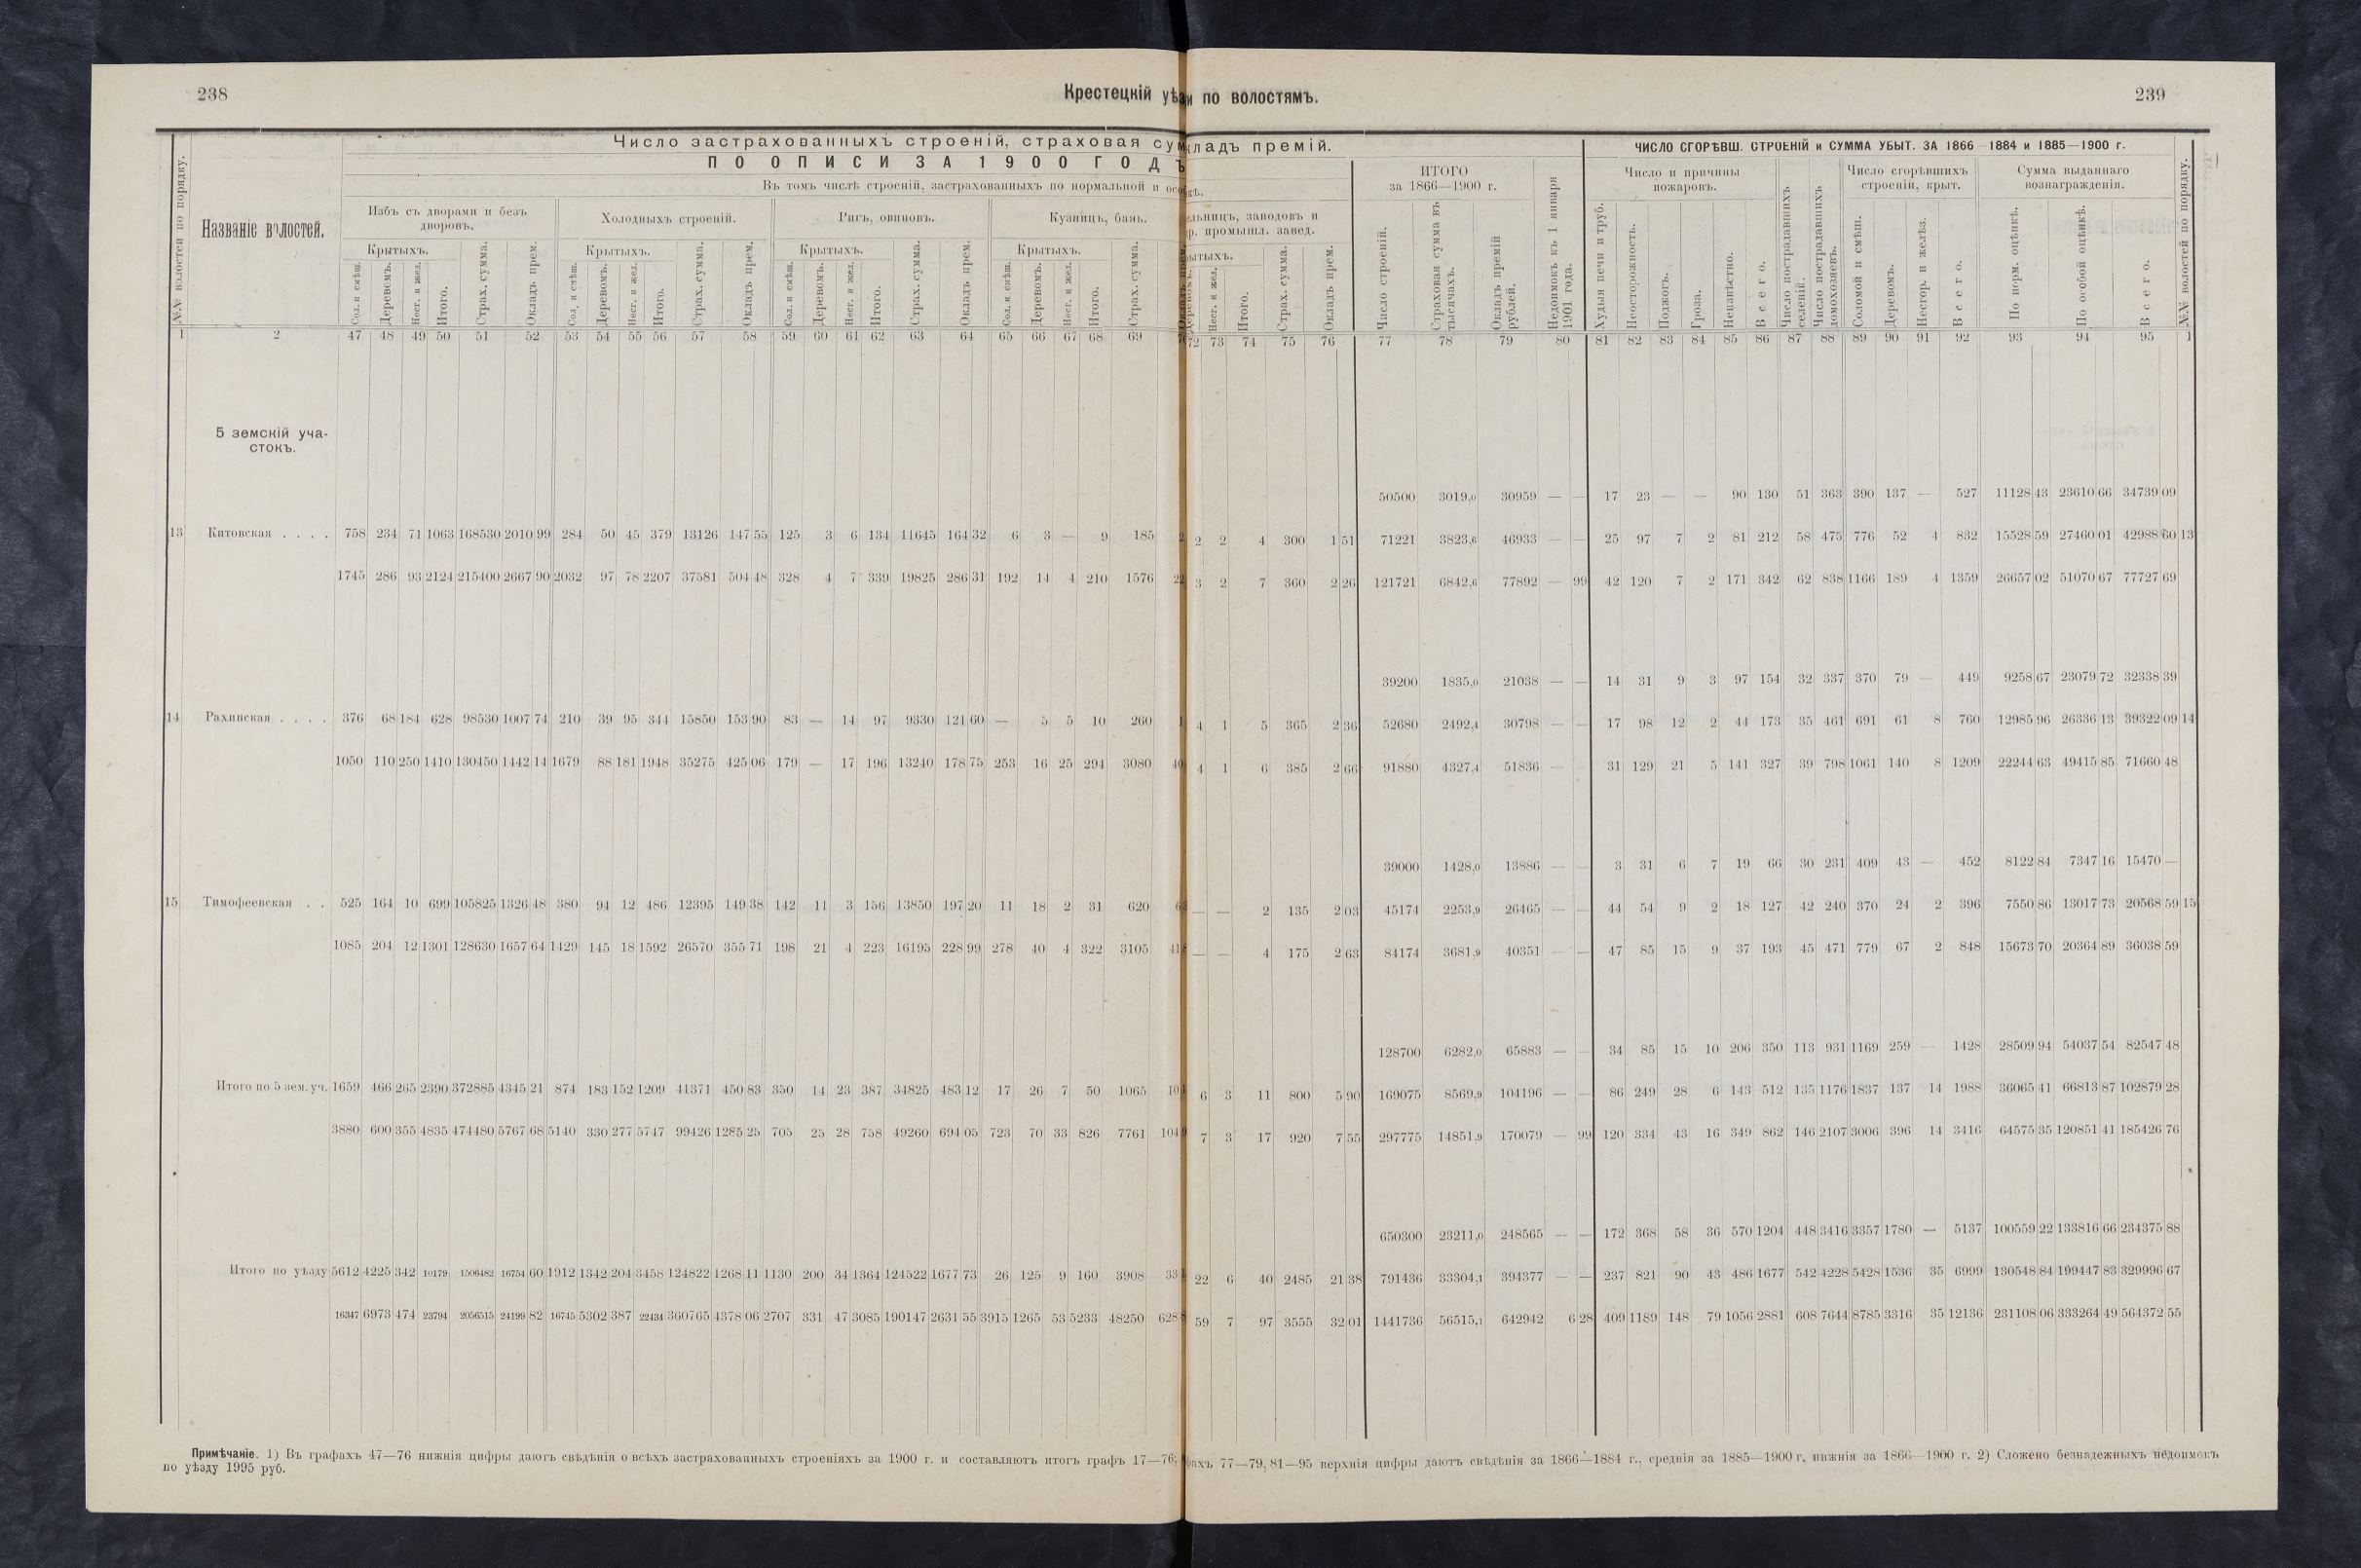 238
Крестецкій уѣз
и по волостямъ.
239
Число застрахованныхъ строеній, страховая су
кладъ премій.
ЧИСЛО СГОРѢВШ. СТРОЕНІЙ и СУММА УБЫТ. ЗА 1866—1884 и 1885—1900 г.
ПО ОПИСИ ЗА 1900 ГОДЪ
Въ томъ числѣ строеній, застрахованныхъ по нормальной и осо
кѣ.
№№ волостей по порядку.
Названіе волостей.
Избъ съ дворами и безъ дворовъ.
Холодныхъ строеній.
Ригъ, овиновъ.
Кузницъ, бань.
ельницъ, заводовъ и
р. промышл. завед.
ИТОГО
за 1866—1900 г.
Недоимокъ къ 1 января 1901 года.
Число и причины пожаровъ.
Число пострадавшихъ селеній.
Число пострадавшихъ домохозяевъ.
Число сгорѣвшихъ строеній, крыт.
Сумма выданнаго вознагражденія.
№№ волостей по порядку.
Крытыхъ. Крытыхъ. Крытыхъ. Крытыхъ. ытыхъ.
Сол. и смѣш. Деревомъ. Несг. и жел. Итого. Страх. сумма. Окладъ прем.
Сол. и смѣш. Деревомъ. Несг. и жел. Итого. Страх. сумма. Окладъ прем.
Сол. и смѣш. Деревомъ. Несг. и жел. Итого. Страх. сумма. Окладъ прем.
Сол. и смѣш. Деревомъ. Несг. и жел. Итого. Страх. сумма.
Деревомъ. Несг. и жел. Итого. Страх. сумма. Окладъ прем.
Число строеній. Страховая сумма въ тысячахъ. Окладъ премій рублей.
Худыя печи и труб. Неосторожность. Поджогъ. Гроза. Неизвѣстно. Всего.
Соломой и смѣш. Деревомъ. Несгор. и желѣз. Всего.
По норм. оцѣнкѣ. По особой оцѣнкѣ. Всего.
1 2 47 48 49 50 51 52 53 54 55 56 57 58 59 60 61 62 63 64 65 66 67 68 69
72 73 74 75 76 77 78 79 80 81 82 83 84 85 86 87 88 89 90 91 92 93 94 95 1
5 земскій уча-
стокъ.
50500 3019,0 30959 — — 17 23 — — 90 130 51 363 390 137 — 527 11128 43 23610 66 34739 09
13 Китовская . . . . 758 234 71 1063 168530 2010 99 284 50 45 379 13126 147 55 125 3 6 134 11645 164 32 6 3 — 9 185
2 2 4 300 1 51 71221 3823,6 46933 — — 25 97 7 2 81 212 58 475 776 52 4 832 15528 59 27460 01 42988 60 13
1745 286 93 2124 215400 2667 90 2032 97 78 2207 37581 504 48 328 4 7 339 19825 286 31 192 14 4 210 1576 22
3 2 7 360 2 26 121721 6842,6 77892 — 99 42 120 7 2 171 342 62 838 1166 189 4 1359 26657 02 51070 67 77727 69
39200 1835,0 21038 — — 14 31 9 3 97 154 32 337 370 79 — 449 9258 67 23079 72 32338 39
14 Рахинская . . . . 376 68 184 628 98530 1007 74 210 39 95 344 15850 153 90 83 — 14 97 9330 121 60 — 5 5 10 260
4 1 5 365 2 36 52680 2492,4 30798 — — 17 98 12 2 44 173 35 461 691 61 8 760 12985 96 26336 13 39322 09 14
1050 110 250 1410 130450 1442 14 1679 88 181 1948 35275 425 06 179 — 17 196 13240 178 75 253 16 25 294 3080 40
4 1 6 385 2 66 91880 4327,4 51836 — 31 129 21 5 141 327 39 798 1061 140 8 1209 22244 63 49415 85 71660 48
39000 1428,0 13886 — — 3 31 6 7 19 66 30 231 409 43 — 452 8122 84 7347 16 15470 —
15 Тимофеевская . . 525 164 10 699 105825 1326 48 380 94 12 486 12395 149 38 142 11 3 156 13850 197 20 11 18 2 31 620
— — 2 135 2 03 45174 2253,9 26465 — — 44 54 9 2 18 127 42 240 370 24 2 396 7550 86 13017 73 20568 59 15
1085 204 12 1301 128630 1657 64 1429 145 18 1592 26570 355 71 198 21 4 223 16195 228 99 278 40 4 322 3105 41
— — 4 175 2 63 84174 3681,9 40351 — — 47 85 15 9 37 193 45 471 779 67 2 848 15673 70 20364 89 36038 59
128700 6282,0 65883 — — 34 85 15 10 206 350 113 931 1169 259 — 1428 28509 94 54037 54 82547 48
Итого по 5 зем. уч. 1659 466 265 2390 372885 4345 21 874 183 152 1209 41371 450 83 350 14 23 387 34825 483 12 17 26 7 50 1065 10
6 3 11 800 5 90 169075 8569,9 104196 — — 86 249 28 6 143 512 135 1176 1837 137 14 1988 36065 41 66813 87 102879 28
3880 600 355 4835 474480 5767 68 5140 330 277 5747 99426 1285 25 705 25 28 758 49260 694 05 723 70 33 826 7761 104
7 3 17 920 7 55 297775 14851,9 170079 — 99 120 334 43 16 349 862 146 2107 3006 396 14 3416 64575 35 120851 41 185426 76
650300 23211,0 248565 — — 172 368 58 36 570 1204 448 3416 3357 1780 — 5137 100559 22 133816 66 234375 88
Итого по уѣзду 5612 4225 342 10179 1506482 16754 60 1912 1342 204 3458 124822 1268 11 1130 200 34 1364 124522 1677 73 26 125 9 160 3908 33
22 6 40 2485 21 38 791436 33304,1 394377 — — 237 821 90 43 486 1677 542 4228 5428 1536 35 6999 130548 84 199447 83 329996 67
16347 6973 474 23794 2056515 24199 82 16745 5302 387 22434 360765 4378 06 2707 331 47 3085 190147 2631 55 3915 1265 53 5233 48250 628
59 7 97 3555 32 01 1441736 56515,1 642942 6 28 409 1189 148 79 1056 2881 608 7644 8785 3316 35 12136 231108 06 333264 49 564372 55
Примѣчаніе. 1) Въ графахъ 47—76 нижнія цифры даютъ свѣдѣнія о всѣхъ застрахованныхъ строеніяхъ за 1900 г. и составляютъ итогъ графъ 17—76;
фахъ 77—79, 81—95 верхнія цифры даютъ свѣдѣнія за 1866—1884 г., среднія за 1885—1900 г, нижнія за 1866—1900 г. 2) Сложено безнадежныхъ недоимокъ
по уѣзду 1995 руб.